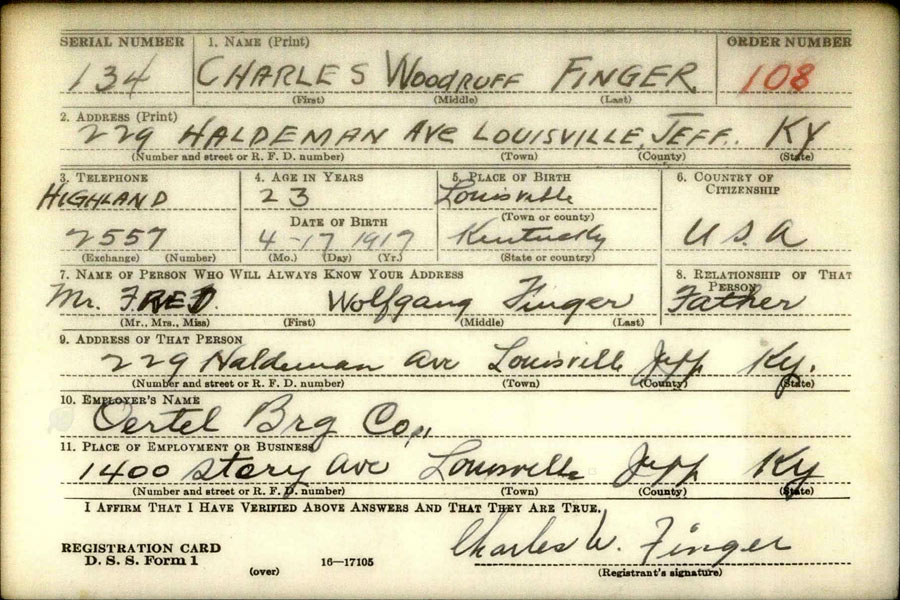 SERIAL NUMBER 1. NAME (Print) ORDER NUMBER
134 CHARLES WOODRUFF FINGER 108
(First) (Middle) (Last)
2. ADDRESS (Print)
229 HALDEMAN AVE LOUISVILLE, JEFF. KY
(Number and street or R. F. D. number) (Town) (County) (State)
3. TELEPHONE 4. AGE IN YEARS 5. PLACE OF BIRTH 6. COUNTRY OF
CITIZENSHIP
HIGHLAND 23 Louisville
(Town or county)
DATE OF BIRTH
2557 4-17 1917 Kentucky U S A
(Exchange) (Number) (Mo.) (Day) (Yr.) (State or country)
7. NAME OF PERSON WHO WILL ALWAYS KNOW YOUR ADDRESS 8. RELATIONSHIP OF THAT
PERSON
Mr. FRED. Wolfgang Finger Father
(Mr., Mrs., Miss) (First) (Middle) (Last)
9. ADDRESS OF THAT PERSON
229 Haldeman Ave Louisville Jeff Ky.
(Number and street or R. F. D. number) (Town) (County) (State)
10. EMPLOYER'S NAME
Oertel Brg Co,,
11. PLACE OF EMPLOYMENT OR BUSINESS
1400 Story Ave Louisville Jeff Ky
(Number and street or R. F. D. number) (Town) (County) (State)
I AFFIRM THAT I HAVE VERIFIED ABOVE ANSWERS AND THAT THEY ARE TRUE.
REGISTRATION CARD Charles W. Finger
D. S. S. Form 1 (over) 16—17105 (Registrant's signature)